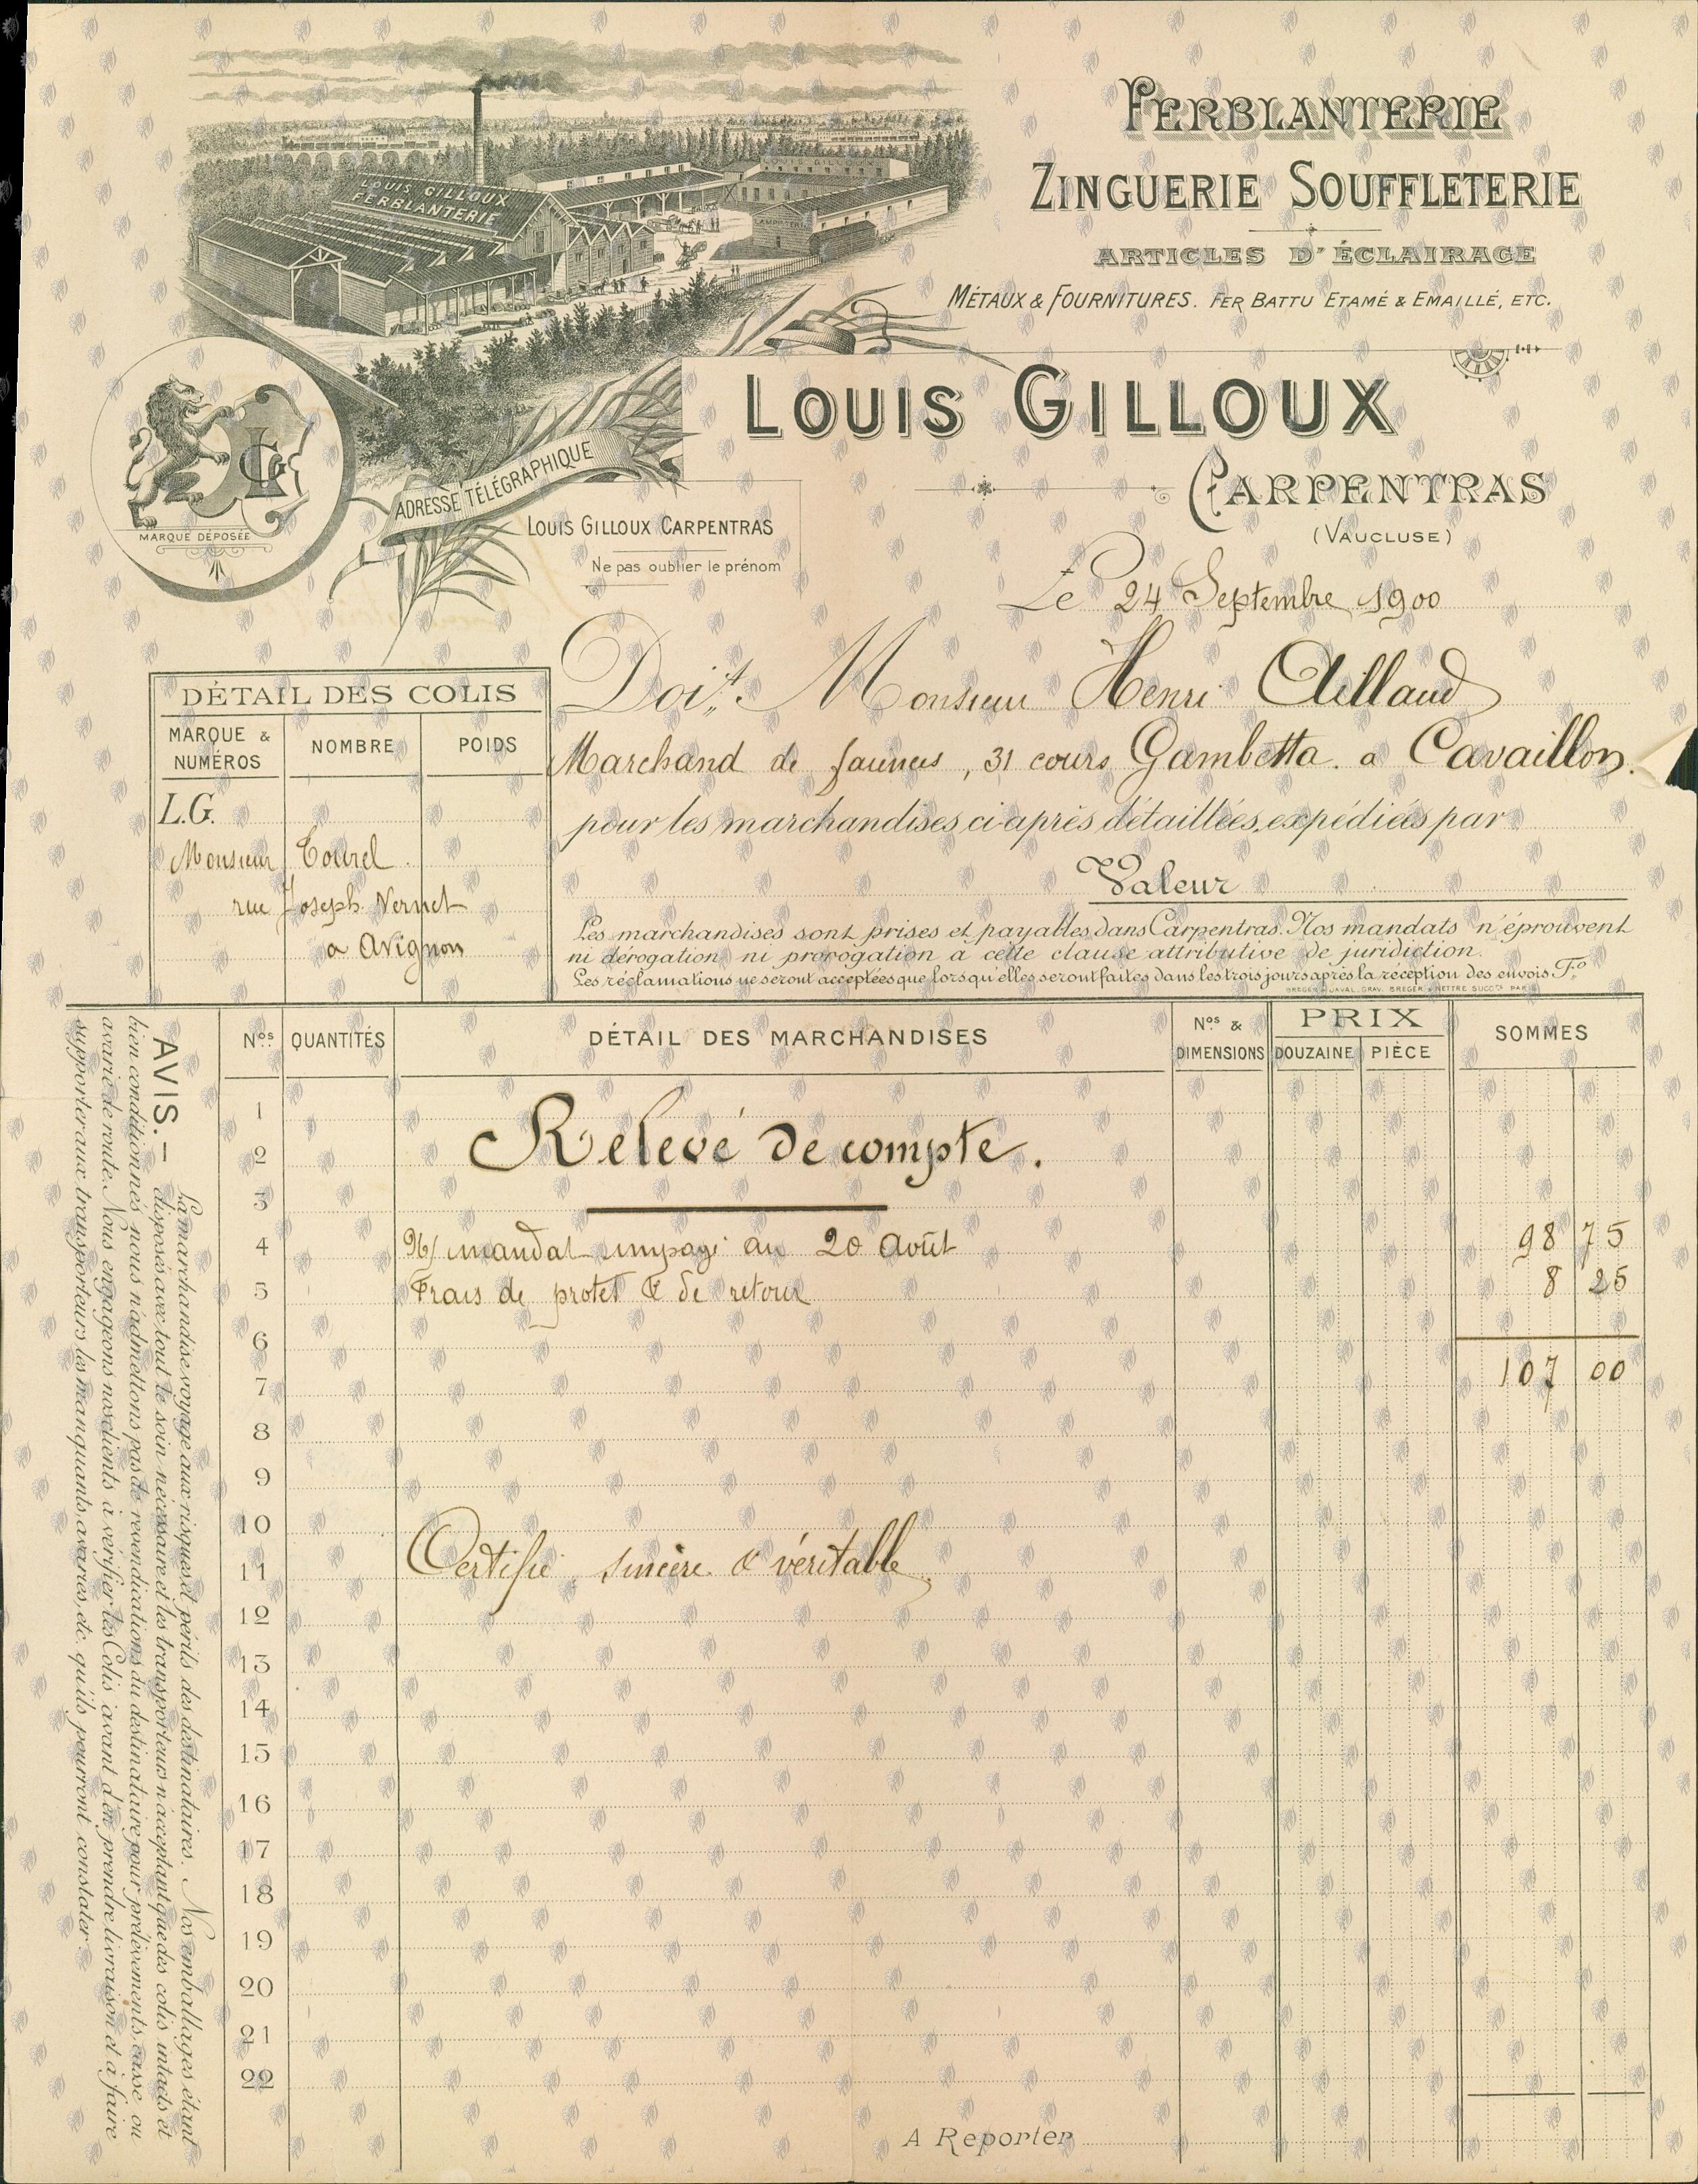 FERBLANTERIE
ZINGUERIE SOUFFLETERIE
ARTICLES D'ÉCLAIRAGE
MÉTAUX & FOURNITURES. FER BATTU ETAMÉ & EMAILLÉ, ETC.
LOUIS GILLOUX
FERBLANTERIE
LOUIS GILLOUX
LAMPISTERIE
LOUIS GILLOUX
CARPENTRAS
(VAUCLUSE)
LG
MARQUE DÉPOSÉE
ADRESSE TÉLÉGRAPHIQUE
LOUIS GILLOUX CARPENTRAS
Ne pas oublier le prénom
Le 24 Septembre 1900
Doit Monsieur Henri
Marchand de 31 cours Gambetta. a Cavaillon.
pour les marchandises ci après détaillées, expédiées par
Valeur
Les marchandises sont prises et payables dans Carpentras. Nos mandats n'éprouvent
ni dérogation ni prorogation à cette clause attributive de juridiction.
Les réclamations ne seront acceptées que lorsqu'elles seront faites dans les trois jours après la réception des envois. Fo
BREGER & JAVAL, GRAV. BREGER & NETTRE SUCCrs PARIS
DÉTAIL DES COLIS
MARQUE & NUMÉROS NOMBRE POIDS
L.G.
Monsieur Tourel
rue Joseph Vernet
a Avignon
Nos QUANTITÉS DÉTAIL DES MARCHANDISES Nos & DIMENSIONS PRIX DOUZAINE PIÈCE SOMMES
1
2 Relevé de compte.
3
4 N/ mandat impayé au 20 Août 98 75
5 Frais de protet & de retour 8 25
6
7 107 00
8
9
10
11 Certifié sincère & véritable
12
13
14
15
16
17
18
19
20
21
22
A Reporter
AVIS. – La marchandise voyage aux risques et périls des destinataires. Nos emballages étant
disposés avec tout le soin nécessaire et les transporteurs n'acceptant que des colis intacts et
bien conditionnés nous n'admettons pas de revendications du destinataire pour prélèvements, casse ou
avarie de route. Nous engageons nos clients à vérifier les Colis avant d'en prendre livraison et à faire
supporter aux transporteurs les manquants, avaries, etc. qu'ils pourront constater.